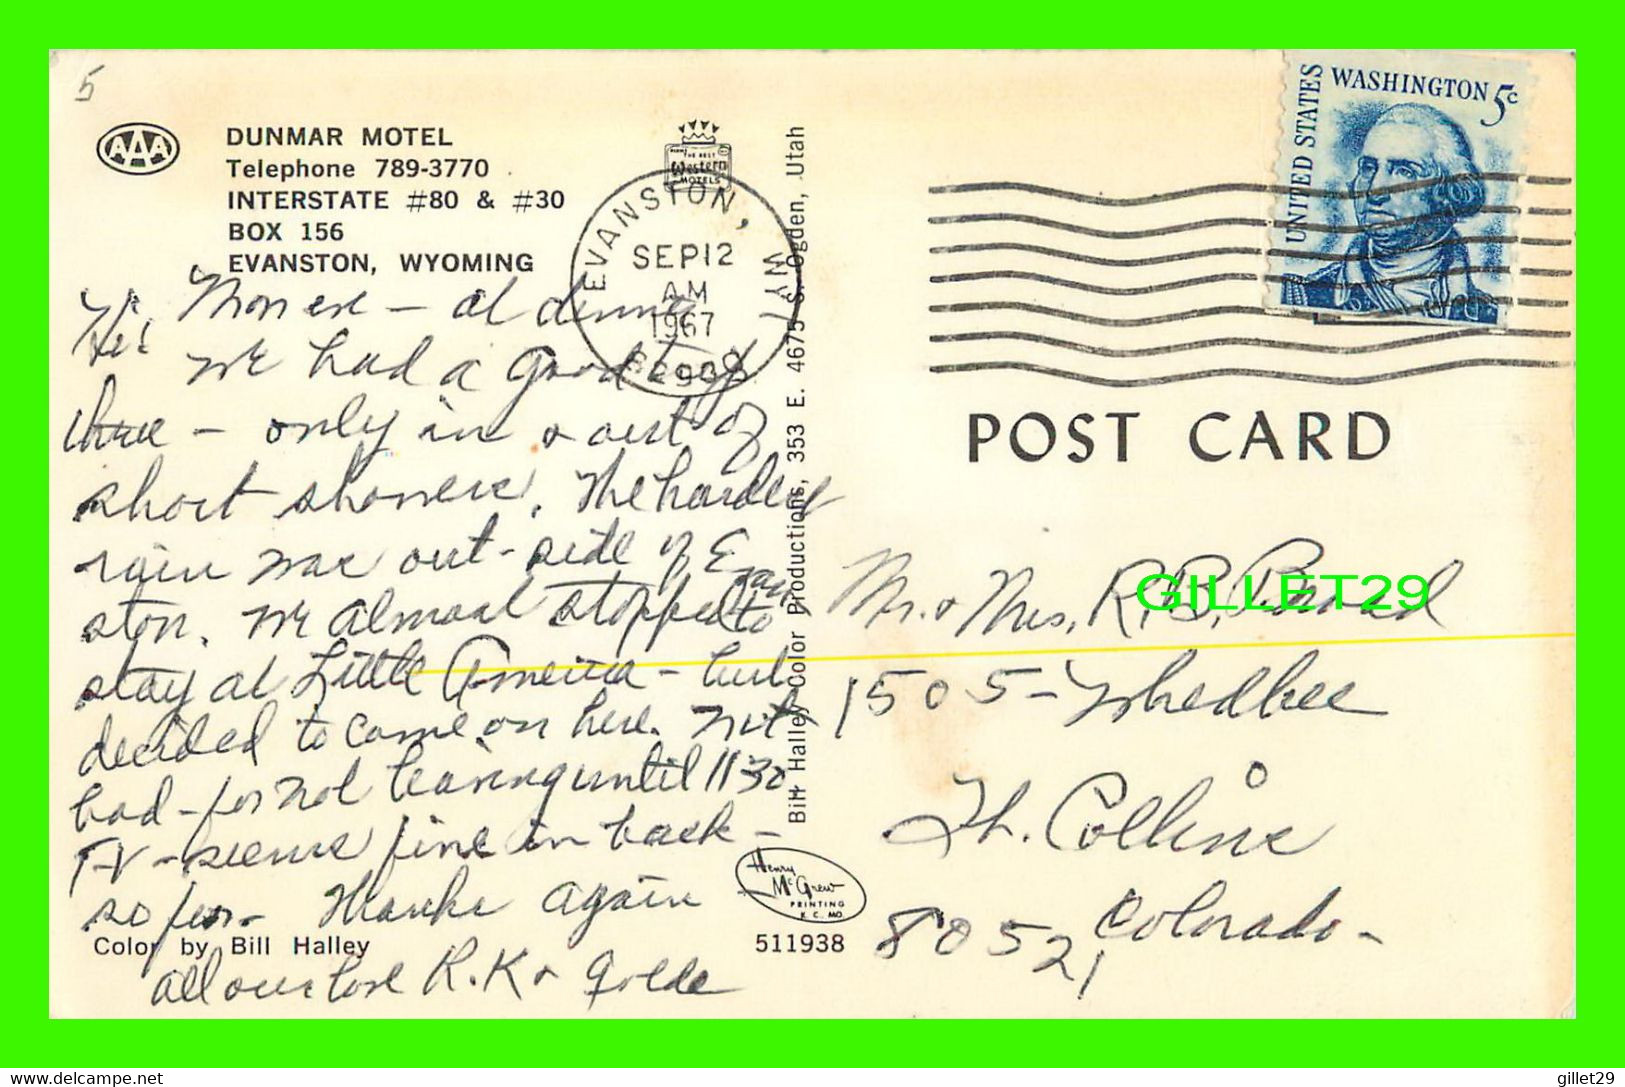 5
AAA
DUNMAR MOTEL
Telephone 789-3770
INTERSTATE #80 & #30
BOX 156
EVANSTON, WYOMING
THE BEST
Western
MOTELS
EVANSTON, WY
SEP 12
AM
1967
82930
UNITED STATES
WASHINGTON 5c
POST CARD
Hi! Mon eve - at dinner
We had a good day
three - only in & out of
short showers. The hardest
rain was out-side of Evan
ston. We almost stopped to
stay at Little America - but
decided to come on here. Not
bad - for not leaving until 11 30
TV - seems fine in back -
so far - Thanks again
all our love R.K &
Color by Bill Halley
Bill Halley Color Productions, 353 E. 4675 S. Ogden, Utah
Henry
McGrew
PRINTING
K. C. MO.
511938
Mr. & Mrs. R. B.
1505 - Whedbee
Ft. Collins
Colorado -
80521
GILLET29
delcampe.net
gillet29